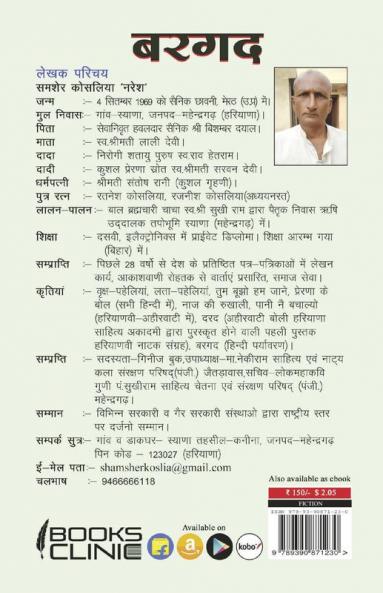 बरगद
लेखक परिचय
समशेर कोसलिया 'नरेश'
जन्म :– 4 सितम्बर 1969 को सैनिक छावनी, मेरठ (उ0प्र0) में।
मुल निवासः– गांव-स्याणा, जनपद-महेन्द्रगढ़ (हरियाणा)।
पिता :– सेवानिवृत हवलदार सैनिक श्री बिशम्बर दयाल।
माता :– स्व.श्रीमती लाली देवी।
दादा :– निरोगी शतायु पुरुष स्व.राव हेतराम।
दादी :– कुशल प्रेरणा स्रोत स्व.श्रीमती सरवन देवी।
धर्मपत्नी :– श्रीमती संतोष रानी (कुशल गृहणी)।
पुत्र रत्न :– रतनेश कोसलिया, रजनीश कोसलिया(अध्ययनरत)
लालन-पालनः– बाल ब्रह्मचारी चाचा स्व.श्री सुखी राम द्वारा पैतृक निवास ऋषि
उद्दालक तपोभूमि स्याणा (महेन्द्रगढ़) में।
शिक्षा :– दसवीं, इलैक्ट्रोनिक्स में प्राईवेट डिप्लोमा। शिक्षा आरम्भ गया
(बिहार) में।
सम्प्राप्ति :– पिछले 28 वर्षो से देश के प्रतिष्ठित पत्र-पत्रिकाओं में लेखन
कार्य, आकाशवाणी रोहतक से वार्ताएं प्रसारित, समाज सेवा।
कृतियां :– वृक्ष-पहेलियां, लता-पहेलियां, तुम बूझो हम जाने, प्रेरणा के
बोल (सभी हिन्दी में), नाज की रुखाली, पानी नै बचाल्यो
(हरियाणवी-अहीरवाटी में), दरद (अहीरवाटी बोली हरियाणा
साहित्य अकादमी द्वारा पुरस्कृत होने वाली पहली पुस्तक
हरियाणवी नाटक संग्रह), बरगद (हिन्दी पर्यावरण)।
सम्प्रति :– सदस्यता-गिनीज बुक,उपाध्यक्ष-मा.नेकीराम साहित्य एवं नाट्य
कला संरक्षण परिषद्(पंजी.) जैतड़ावास,सचिव-लोकमहाकवि
गुणी पं.सुखीराम साहित्य चेतना एवं संरक्षण परिषद् (पंजी.)
महेन्द्रगढ़।
सम्मान :– विभिन्न सरकारी व गैर सरकारी संस्थाओ द्वारा राष्ट्रीय स्तर
पर दर्जनो सम्मान।
सम्पर्क सुत्रः– गांव व डाकघर- स्याणा तहसील-कनीना, जनपद-महेन्द्रगढ़
पिन कोड - 123027 (हरियाणा)
ई-मेल पता :– shamsherkoslia@gmail.com
चलभाष :– 9466666118
Also available as ebook
₹ 150/- $ 2.05
FICTION
ISBN 978-93-90871-23-0
9 789390 871230 >
BOOKS
CLINIC
Available on
kobo